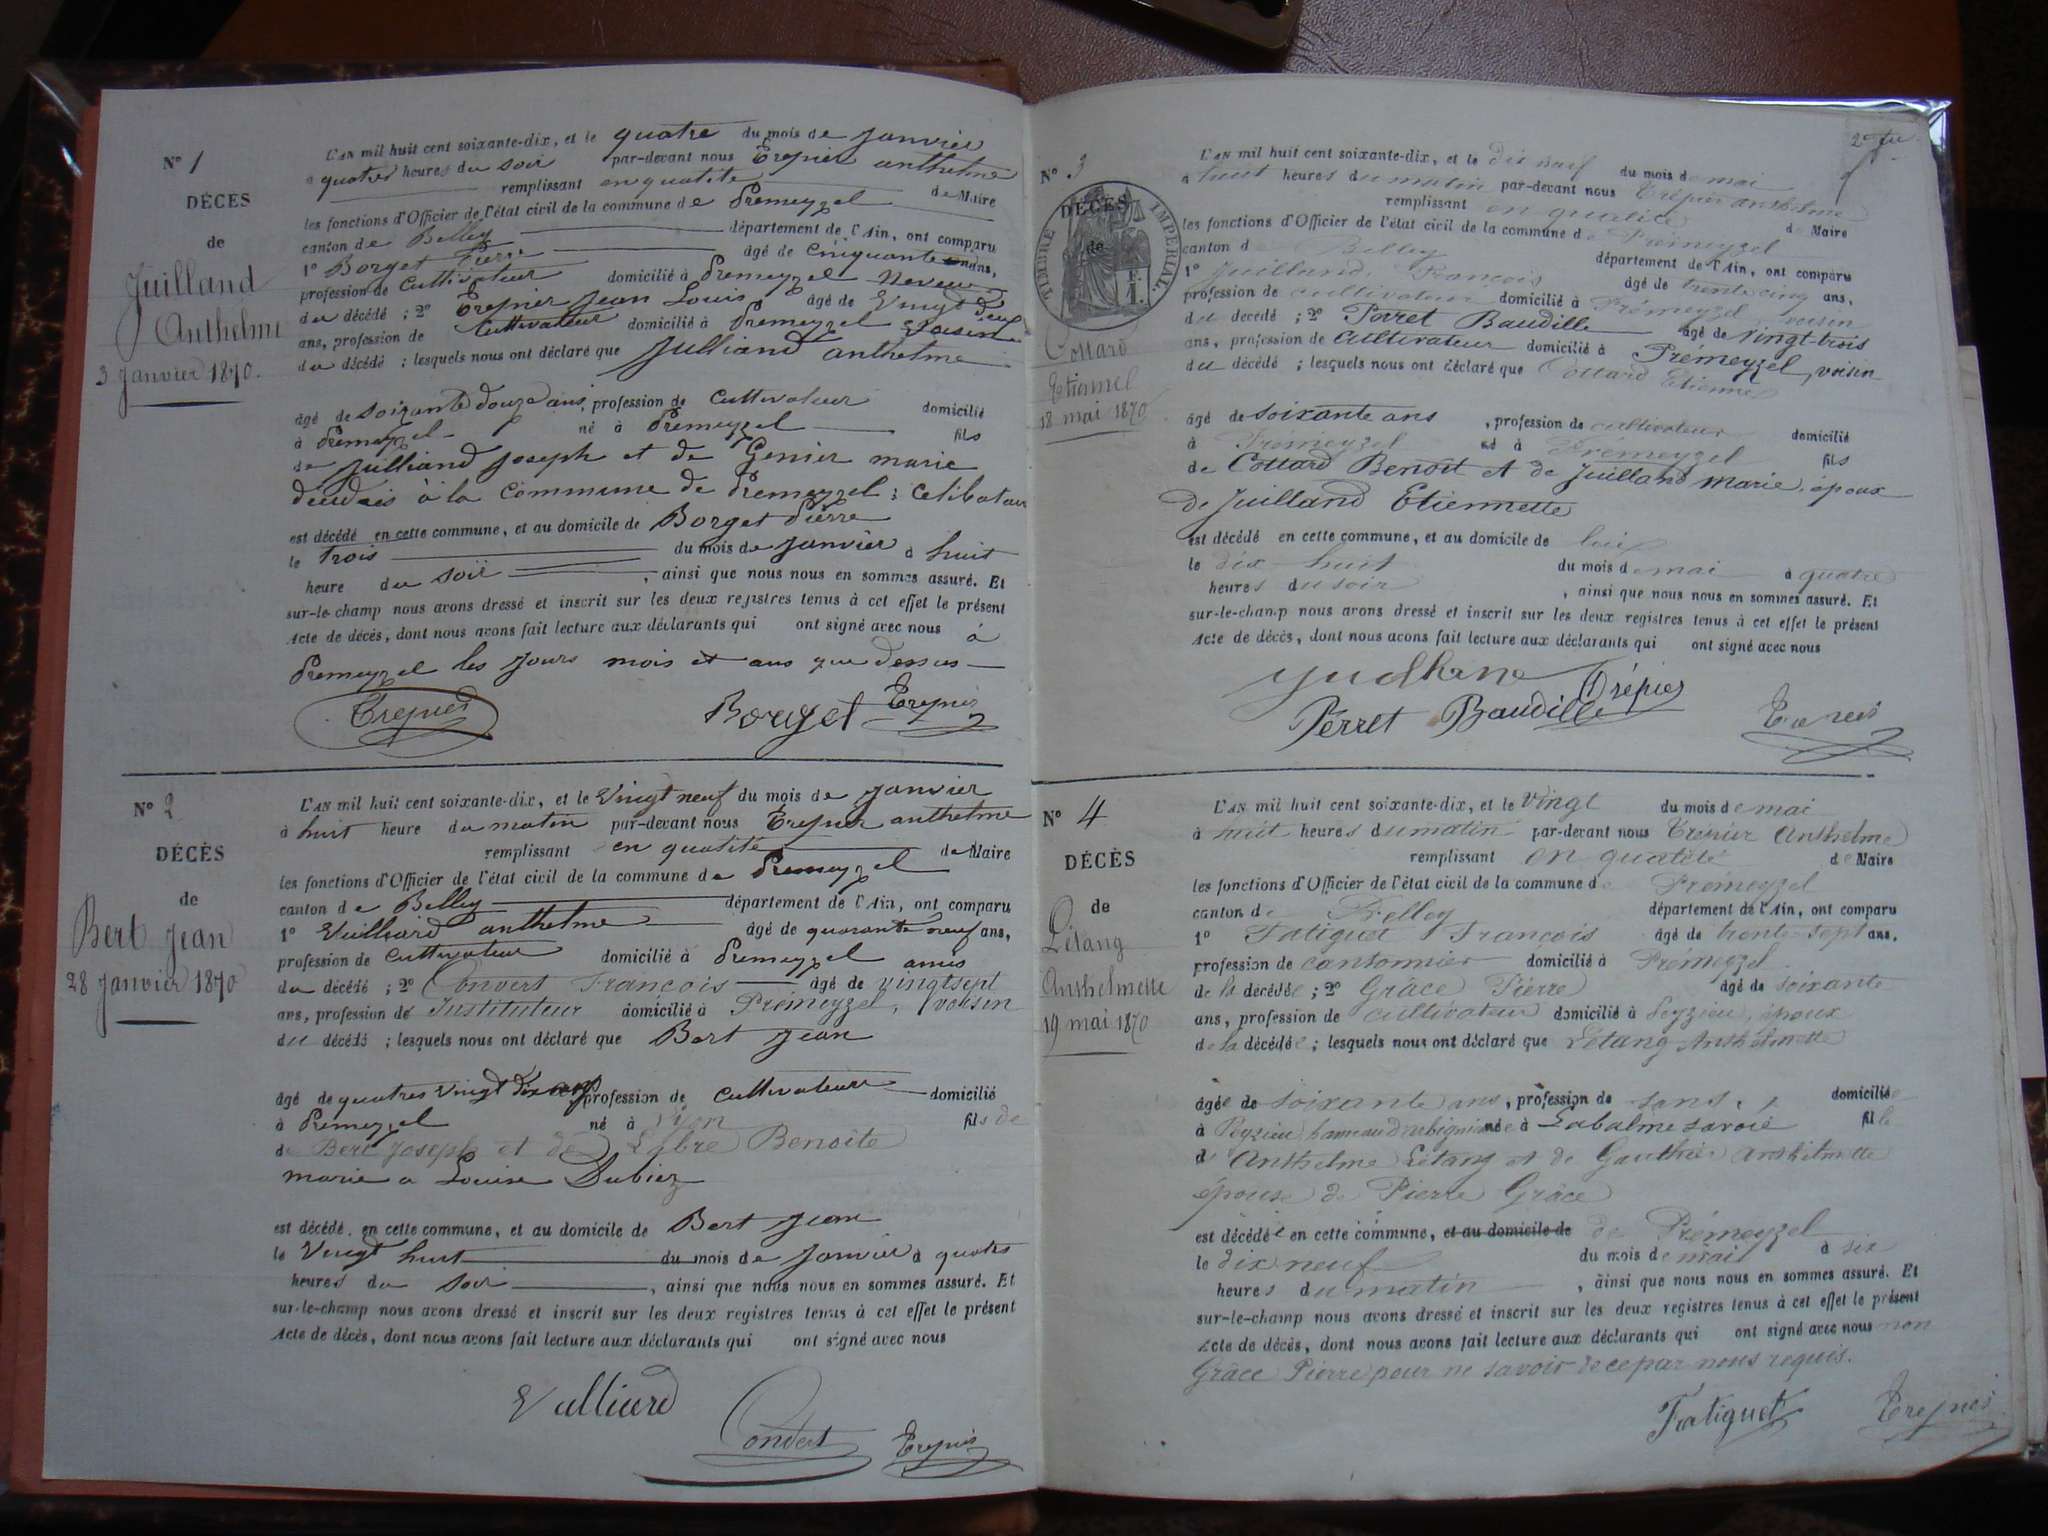 N° 1
DÉCÈS
de
Juilland
Anthelme
3 Janvier 1870.
L'AN mil huit cent soixante-dix, et le quatre du mois de Janvier
à quatre heures du soir par-devant nous Trepier anthelme
remplissant en qualité de Maire
les fonctions d'Officier de l'état civil de la commune de Premeyzel
canton de Belley département de l'Ain, ont comparu
1° Borget Pierre âgé de Cinquante ans,
profession de Cultivateur domicilié à Premeyzel Neveu
du décédé ; 2° Trepier Jean Louis âgé de Vingt
ans, profession de Cultivateur domicilié à Premeyzel voisin
du décédé ; lesquels nous ont déclaré que Julliand anthelme
âgé de soixante douze ans, profession de Cultivateur domicilié
à Premeyzel né à Premeyzel fils
de Julliand Joseph et de Genier marie
à la Commune de Premeyzel ; Celibataire
est décédé en cette commune, et au domicile de Borget Pierre
le trois du mois de Janvier à huit
heure du soir, ainsi que nous nous en sommes assuré. Et
sur-le-champ nous avons dressé et inscrit sur les deux registres tenus à cet effet le présent
Acte de décès, dont nous avons fait lecture aux déclarants qui ont signé avec nous à
Premeyzel les Jours mois et ans que dessus
Trepier Borget Trepier
N° 2
DÉCÈS
de
Bert Jean
28 Janvier 1870
L'AN mil huit cent soixante-dix, et le Vingt neuf du mois de Janvier
à huit heure du matin par-devant nous Trepier anthelme
remplissant en qualité de Maire
les fonctions d'Officier de l'état civil de la commune de Premeyzel
canton de Belley département de l'Ain, ont comparu
1° Vuilliard anthelme âgé de quarante neuf ans,
profession de Cultivateur domicilié à Premeyzel amis
du décédé ; 2° Convert François âgé de vingt sept
ans, profession de Instituteur domicilié à Prémeyzel, voisin
du décédé ; lesquels nous ont déclaré que Bert Jean
âgé de quatres vingt dix profession de Cultivateur domicilié
à Premeyzel né à fils de
de Bert Joseph et de Labre Benoîte
marie a Louise Dubiez
est décédé en cette commune, et au domicile de Bert Jean
le Vingt huit du mois de Janvier à quatre
heures du soir, ainsi que nous nous en sommes assuré. Et
sur-le-champ nous avons dressé et inscrit sur les deux registres tenus à cet effet le présent
Acte de décès, dont nous avons fait lecture aux déclarants qui ont signé avec nous
Vulliard
Convert Trepier
N° 3
DÉCÈS
de
TIMBRE IMPÉRIAL
Cottard
Etienne
18 mai 1870
L'AN mil huit cent soixante-dix, et le dix neuf du mois de mai
à huit heures du matin par-devant nous Trépier anthelme
remplissant en qualité de Maire
les fonctions d'Officier de l'état civil de la commune de Prémeyzel
canton de Belley département de l'Ain, ont comparu
1° Juilland François âgé de trente cinq ans,
profession de cultivateur domicilié à Prémeyzel voisin
du décédé ; 2° Perret Baudille âgé de vingt-trois
ans, profession de cultivateur domicilié à Prémeyzel, voisin
du décédé ; lesquels nous ont déclaré que Cottard Etienne
âgé de soixante ans, profession de cultivateur domicilié
à Prémeyzel né à Prémeyzel fils
de Cottard Benoît et de Juilland Marie, époux
de Juilland Etiennette
est décédé en cette commune, et au domicile de lui
le dix huit du mois de mai à quatre
heures du soir, ainsi que nous nous en sommes assuré. Et
sur-le-champ nous avons dressé et inscrit sur les deux registres tenus à cet effet le présent
Acte de décès, dont nous avons fait lecture aux déclarants qui ont signé avec nous
Trépier
Perret Baudille
N° 4
DÉCÈS
de
Létang
Anthelmette
19 mai 1870
L'AN mil huit cent soixante-dix, et le vingt du mois de mai
à huit heures du matin par-devant nous Trepier Anthelme
remplissant en qualité de Maire
les fonctions d'Officier de l'état civil de la commune de Prémeyzel
canton de Belley département de l'Ain, ont comparu
1° Fatiguet François âgé de trente-sept ans,
profession de cantonnier domicilié à Prémeyzel
de la décédée ; 2° Grâce Pierre âgé de soixante
ans, profession de cultivateur domicilié à Peyzieu, époux
de la décédée ; lesquels nous ont déclaré que Létang Anthelmette
âgée de soixante ans, profession de sans, domiciliée
à Peyzieu hameau d'arbignieu née à Labalme savoie fille
d' Anthelme Létang et de Gauthier Anthelmette
épouse de Pierre Grâce
est décédée en cette commune, et au domicile de de Prémeyzel
le dix neuf du mois de mai à six
heures du matin, ainsi que nous nous en sommes assuré. Et
sur-le-champ nous avons dressé et inscrit sur les deux registres tenus à cet effet le présent
Acte de décès, dont nous avons fait lecture aux déclarants qui ont signé avec nous non
Grâce Pierre pour ne savoir de ce par nous requis.
Fatiguet Trepier